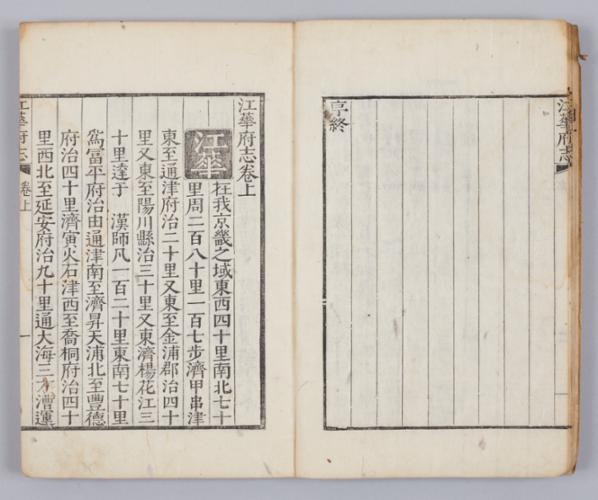 江華府志
序終
江華府志卷上
江華
在我京畿之域東西四十里南北七十
里周二百八十里一百七步濟甲串津
東至通津府治二十里又東至金浦郡治四十
里又東至陽川縣治三十里又東濟楊花江三
十里達于 漢師凡一百二十里東南七十里
爲富平府治由通津南至濟昇天浦北至豐德
府治四十里濟寅火石津西至喬桐府治四十
里西北至延安府治九十里通大海三方漕運
江華府志 卷上 一